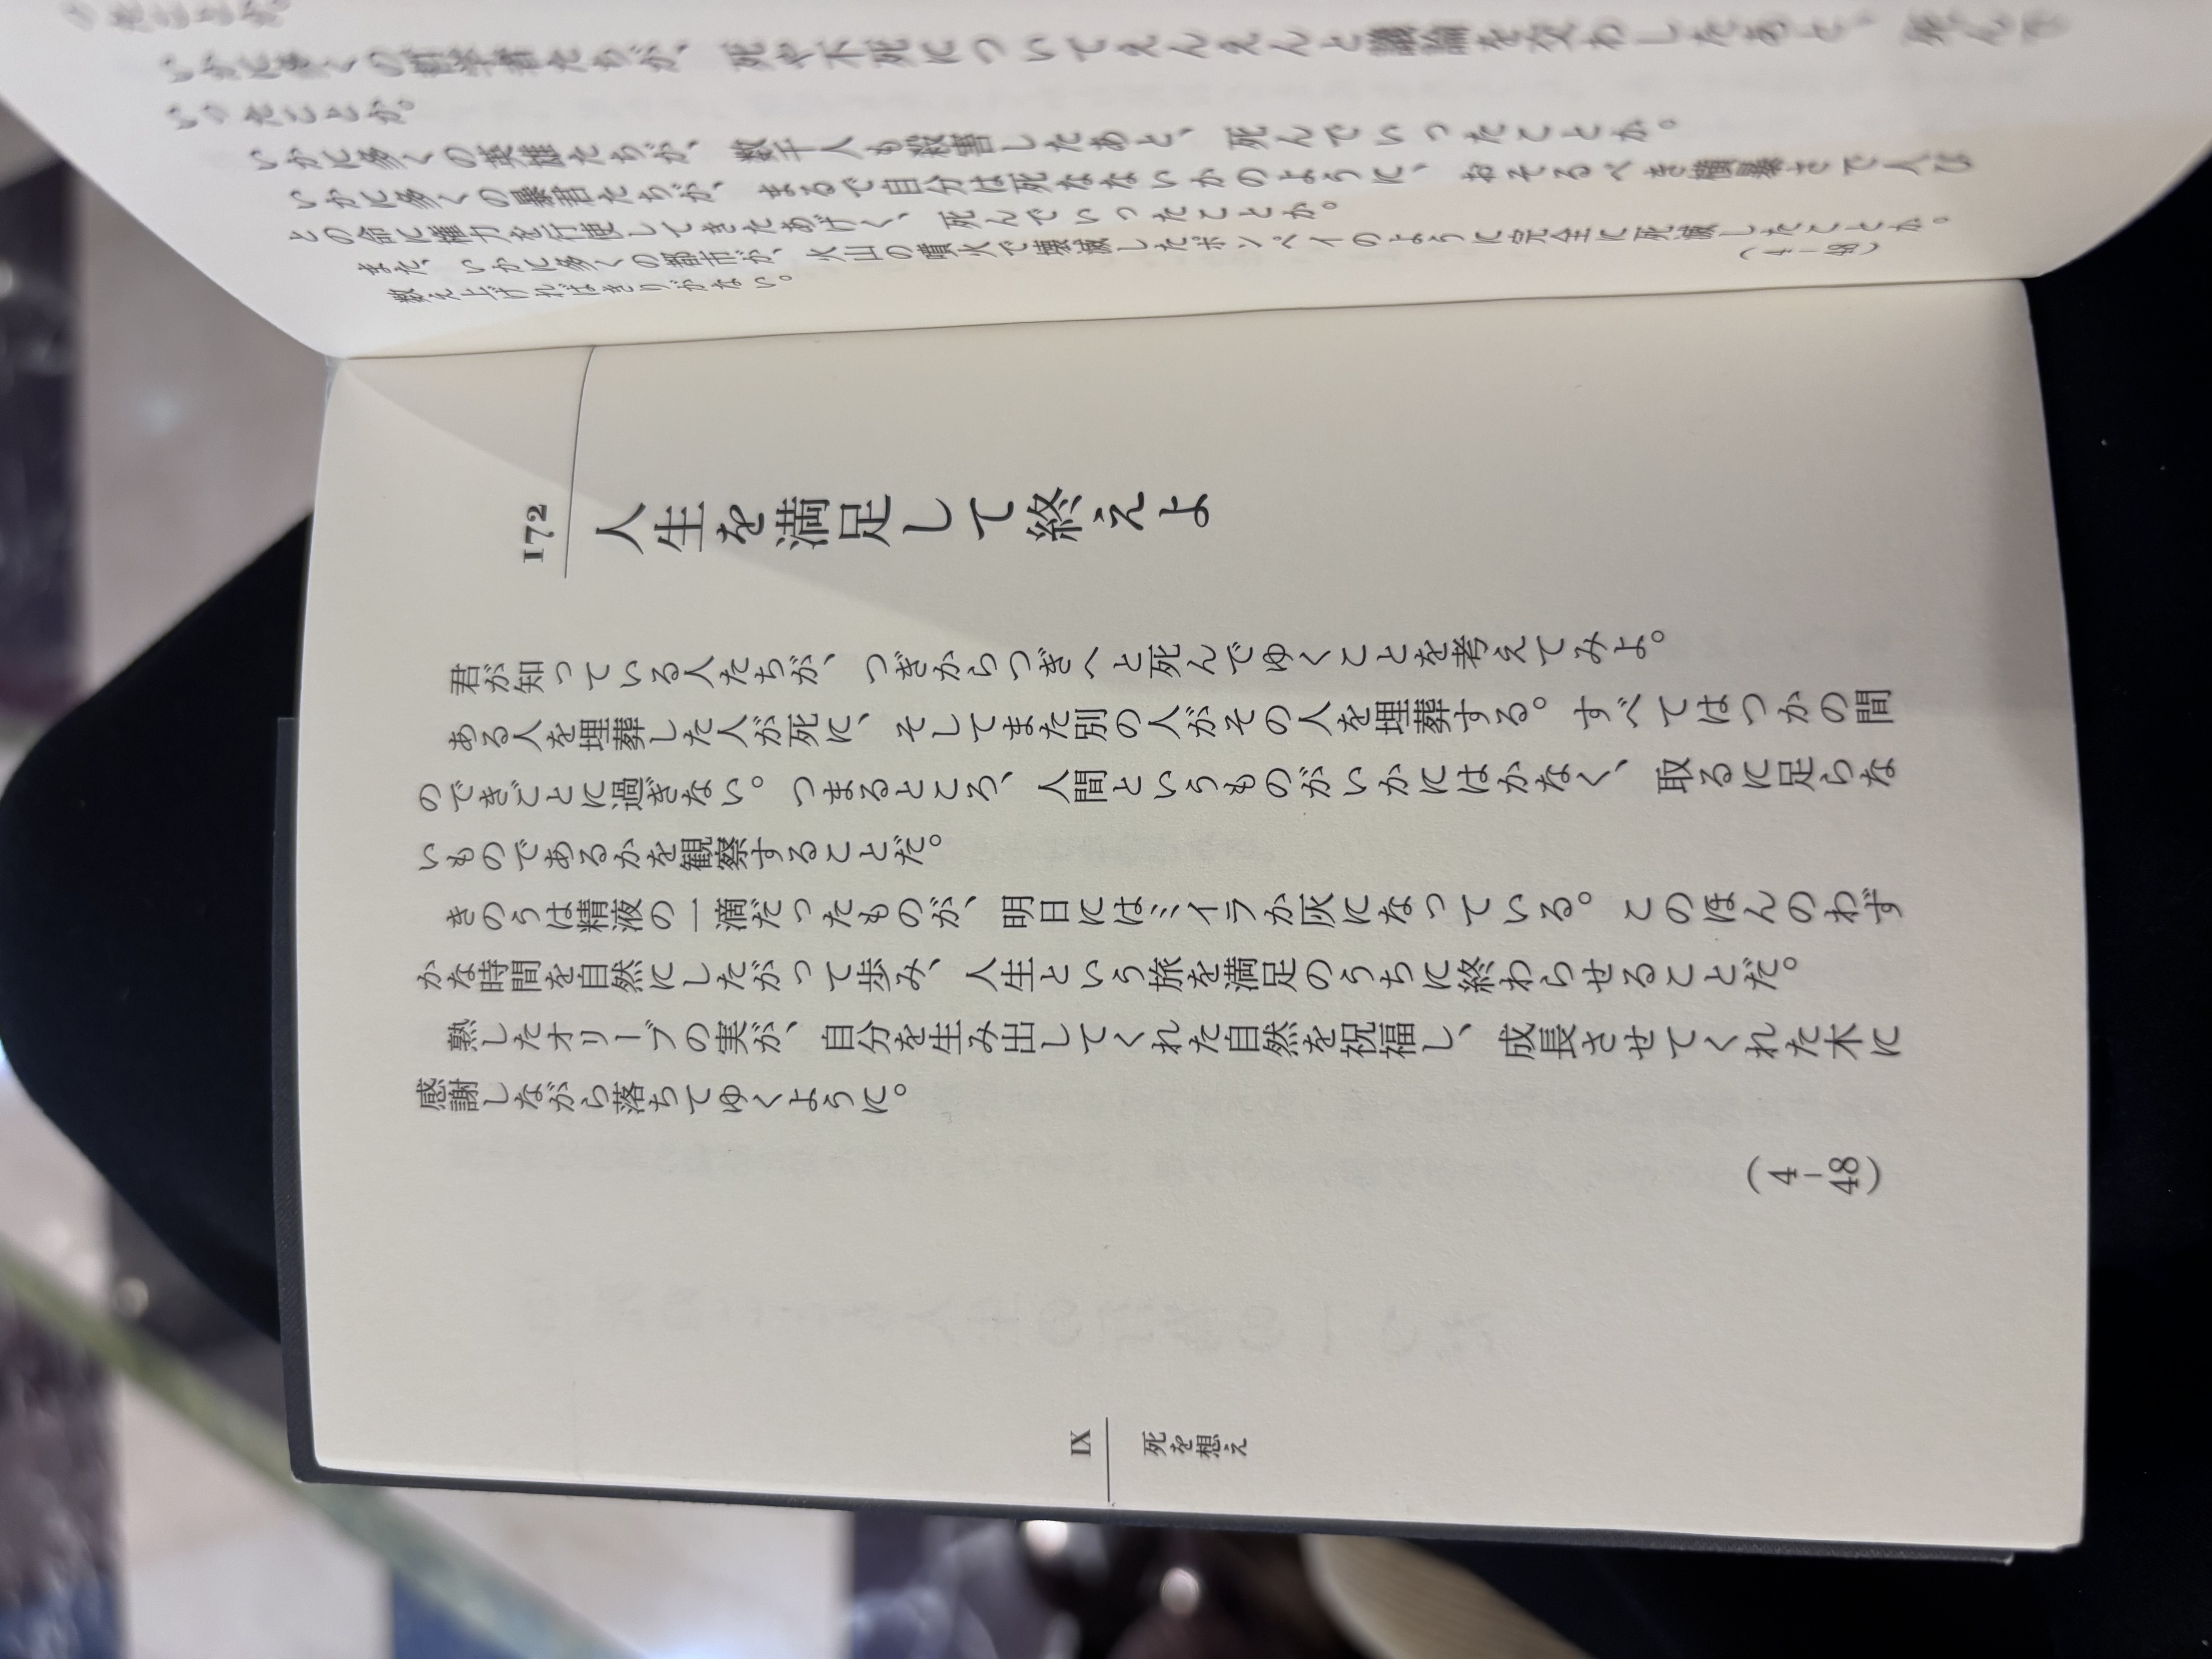 いかに多くの哲学者たちが、死や不死についてえんえんと議論を交わしたあと、死んで
いったことか。
いかに多くの英雄たちが、数千人も殺害したあと、死んでいったことか。
いかに多くの暴君たちが、まるで自分は死なないかのように、おそるべき横暴さで人び
との命に権力を行使してきたあげく、死んでいったことか。
また、いかに多くの都市が、火山の噴火で壊滅したポンペイのように完全に死滅したことか。
数え上げればきりがない。
(4-48)
172
人生を満足して終えよ
君が知っている人たちが、つぎからつぎへと死んでゆくことを考えてみよ。
ある人を埋葬した人が死に、そしてまた別の人がその人を埋葬する。すべてはつかの間
のできごとに過ぎない。つまるところ、人間というものがいかにはかなく、取るに足らな
いものであるかを観察することだ。
きのうは精液の一滴だったものが、明日にはミイラか灰になっている。このほんのわず
かな時間を自然にしたがって歩み、人生という旅を満足のうちに終わらせることだ。
熟したオリーブの実が、自分を生み出してくれた自然を祝福し、成長させてくれた木に
感謝しながら落ちてゆくように。
(4-48)
IX
死を想え